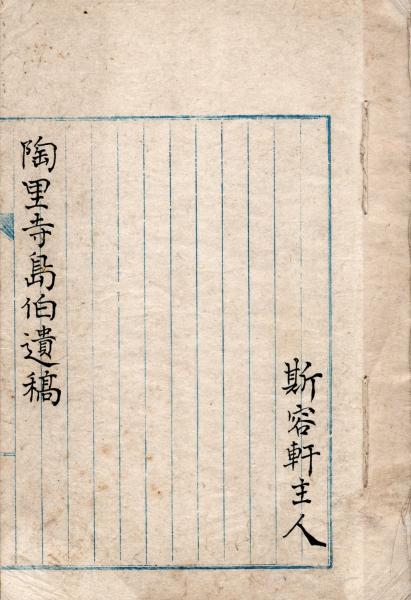 斯容軒主人
陶里寺島伯遺稿